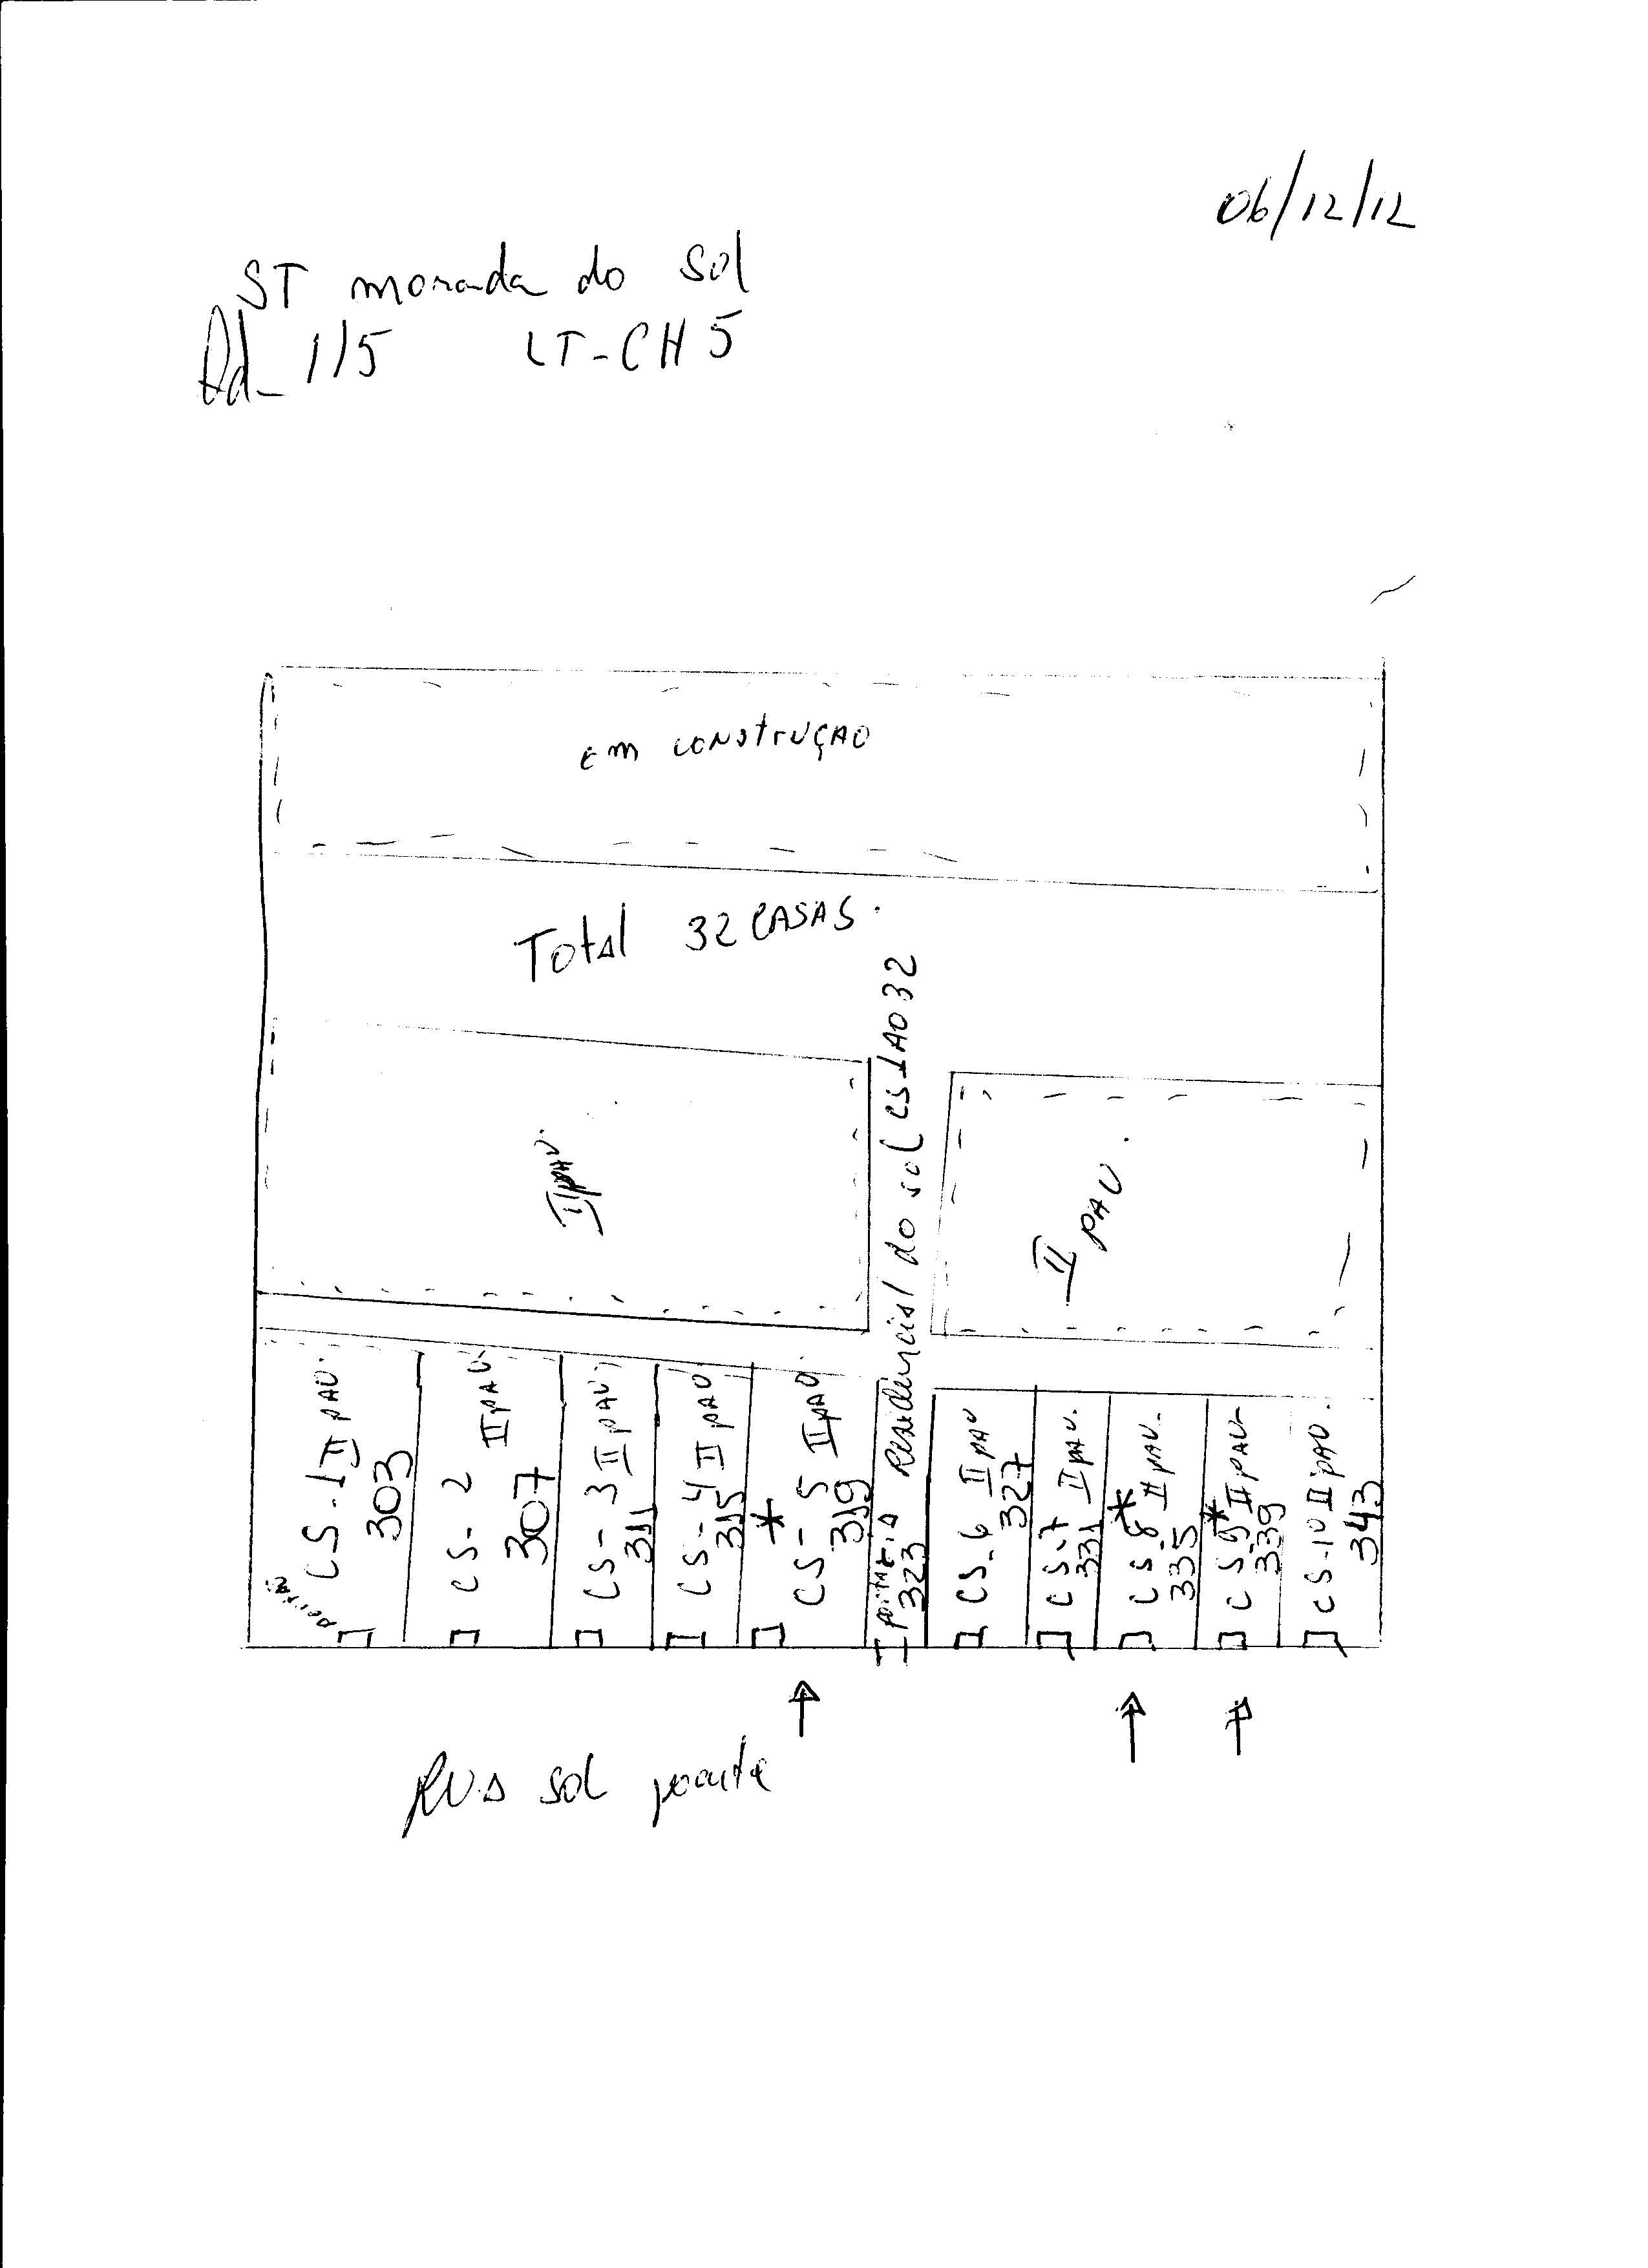 06/12/12
ST morada do sol
Qd_ 115 LT-CH 5
em construção
Total 32 CASAS.
II pav.
II pav.
Residencial do sol CS 1 AO 32
CS-1 II pav.
303
CS-2 II pav
307
CS-3 II pav
311
CS-4 II pav
315
* CS-5 II pav
319
323
CS-6 II pav
327
CS-7 II pav.
331
* CS-8 II pav.
335
* CS 9 II pav
339
CS-10 II pav.
343
RUA sol poente